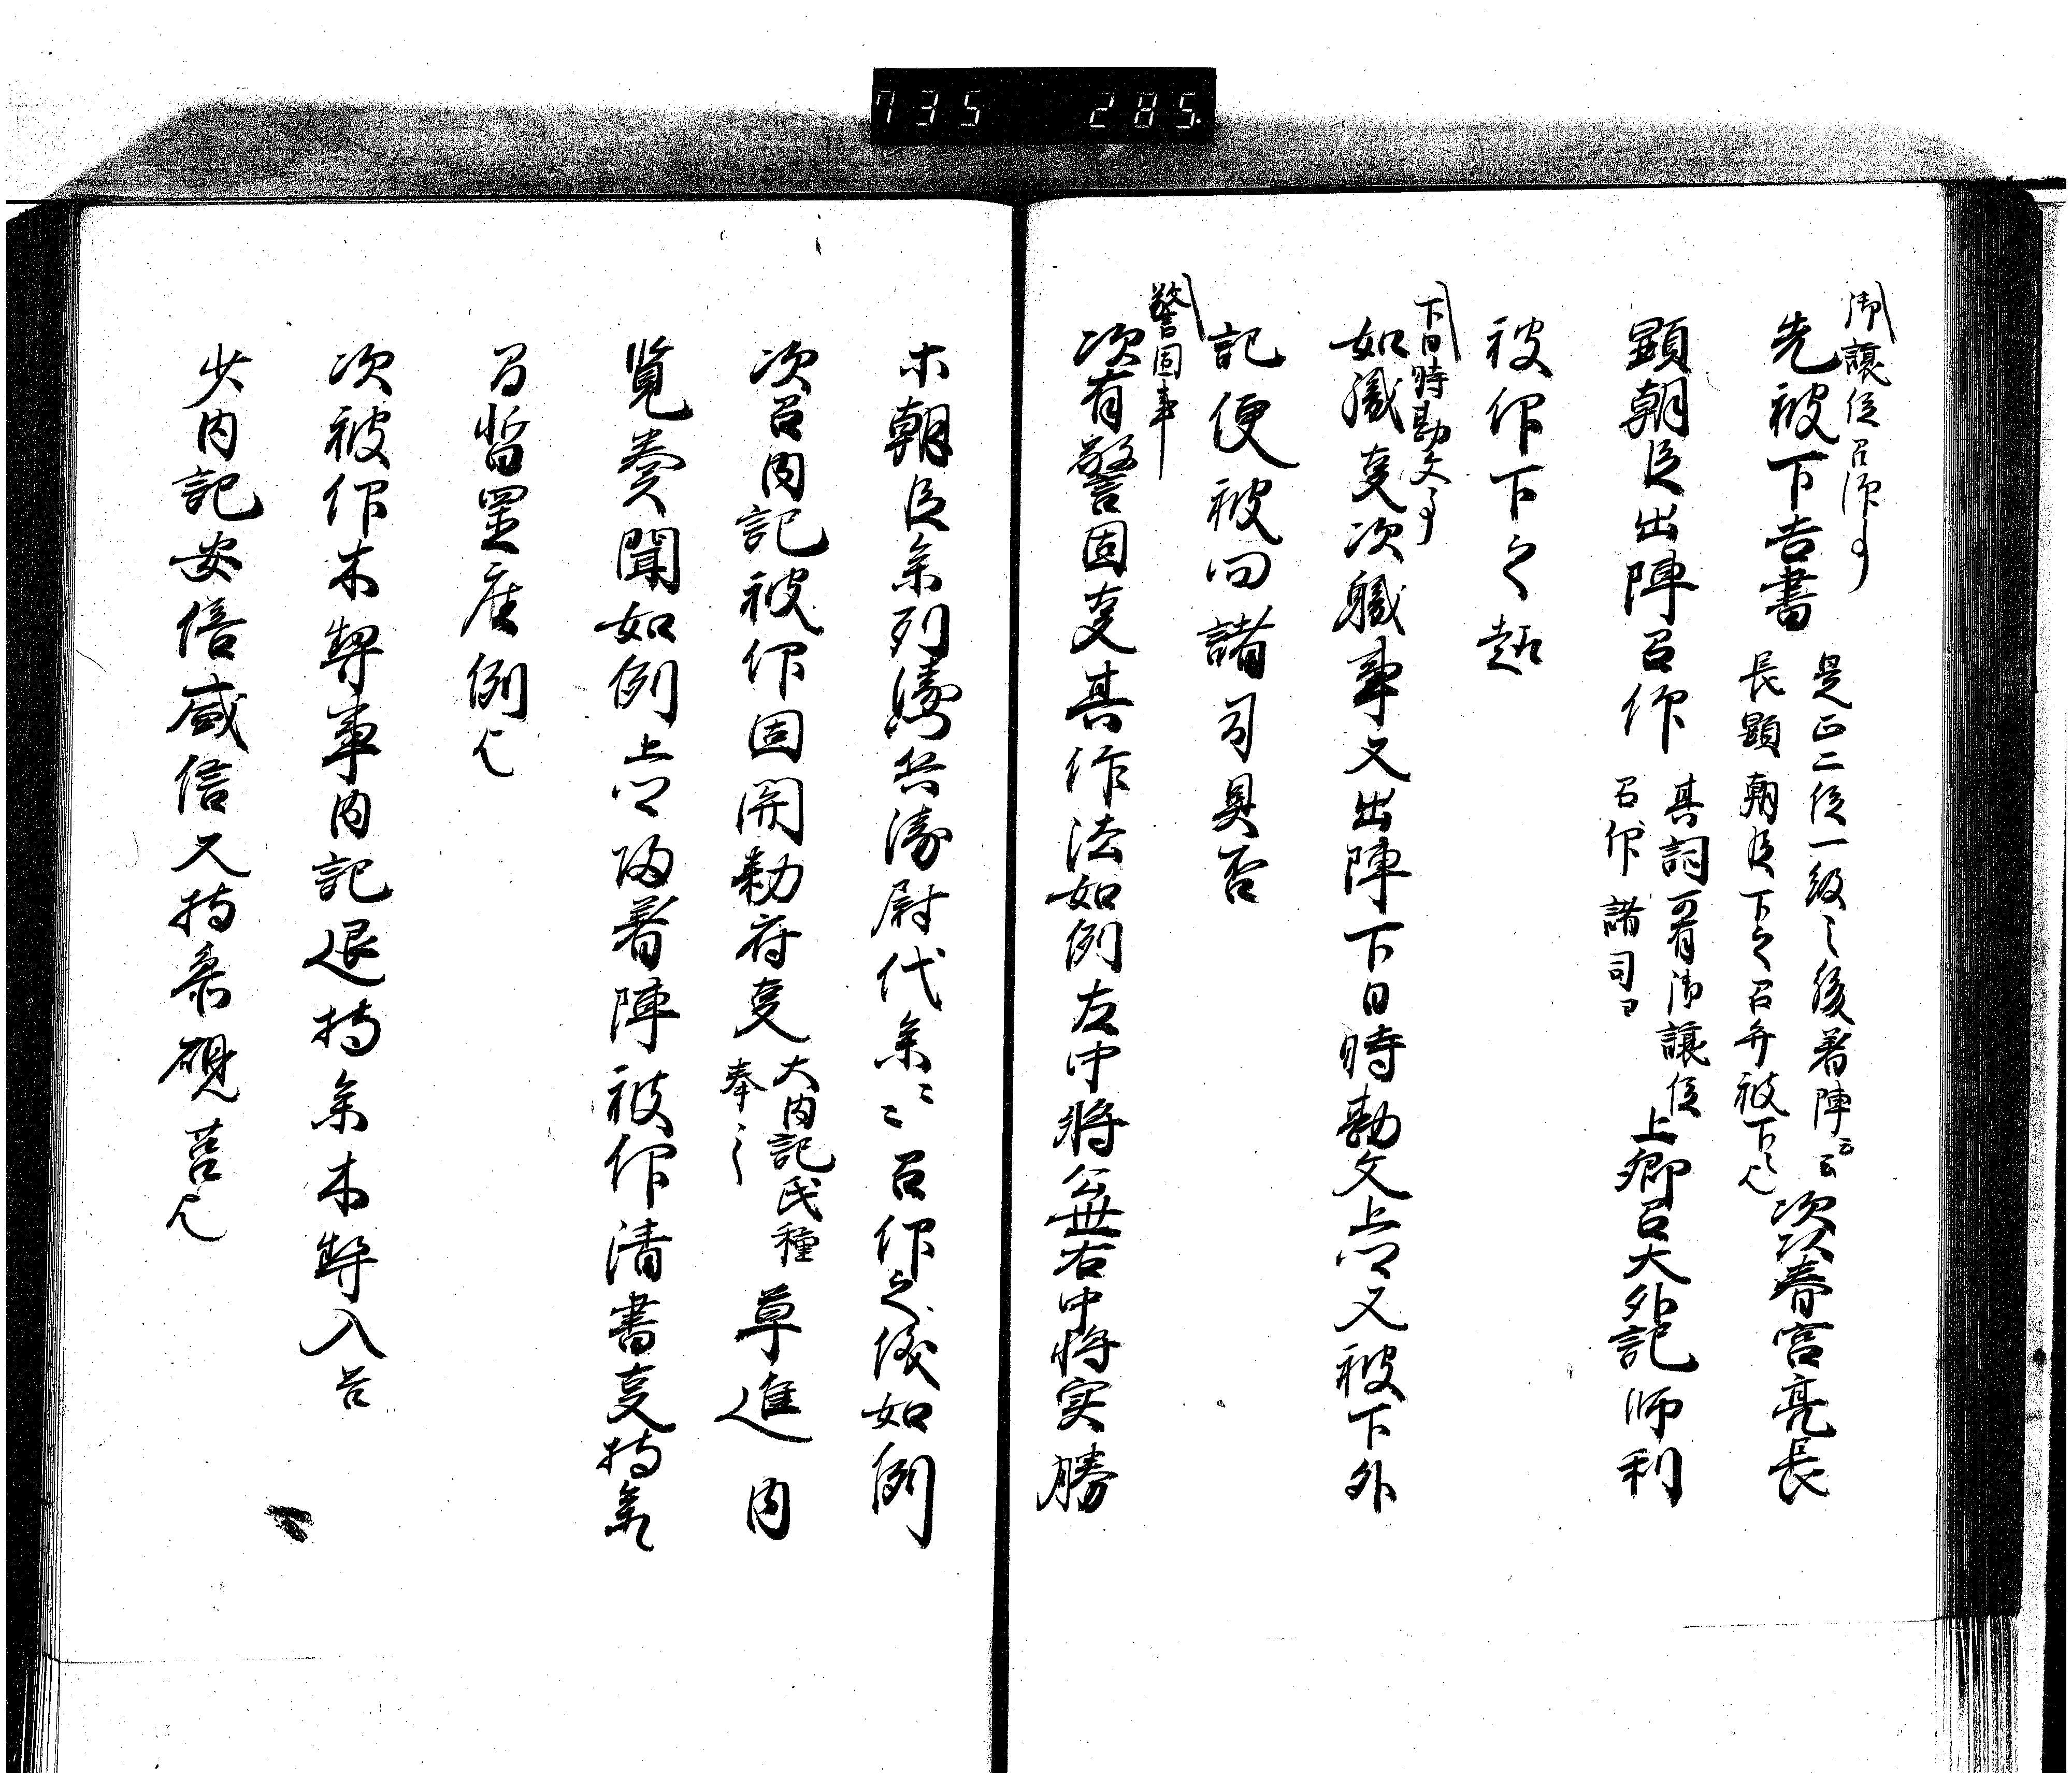 735 285
御譲位召仰事
先被下吉書 是正二位一級之後著陣云云 長顕朝臣下之召弁被下之 次春宮亮長
顕朝臣出陣召仰 其詞可有御譲位 召仰諸司ヨ 上卿召大外記師利
被仰下之趣
下日時勘文事
如職事次職事又出陣下日時勘文上卿又被下外
記便被問諸司具否
警固事
次有警固事其作法如例左中将公世右中将実勝
等朝臣参列 兵衛尉代参 召仰之後如例
次召内記被仰固関勅符事 大内記氏種 奉之 草進内
覧奏聞如例上卿帰著陣被仰清書事持参
召暫置座例也
次被仰木契事内記退持参木契入筥
少内記安倍盛信又持参硯筥也